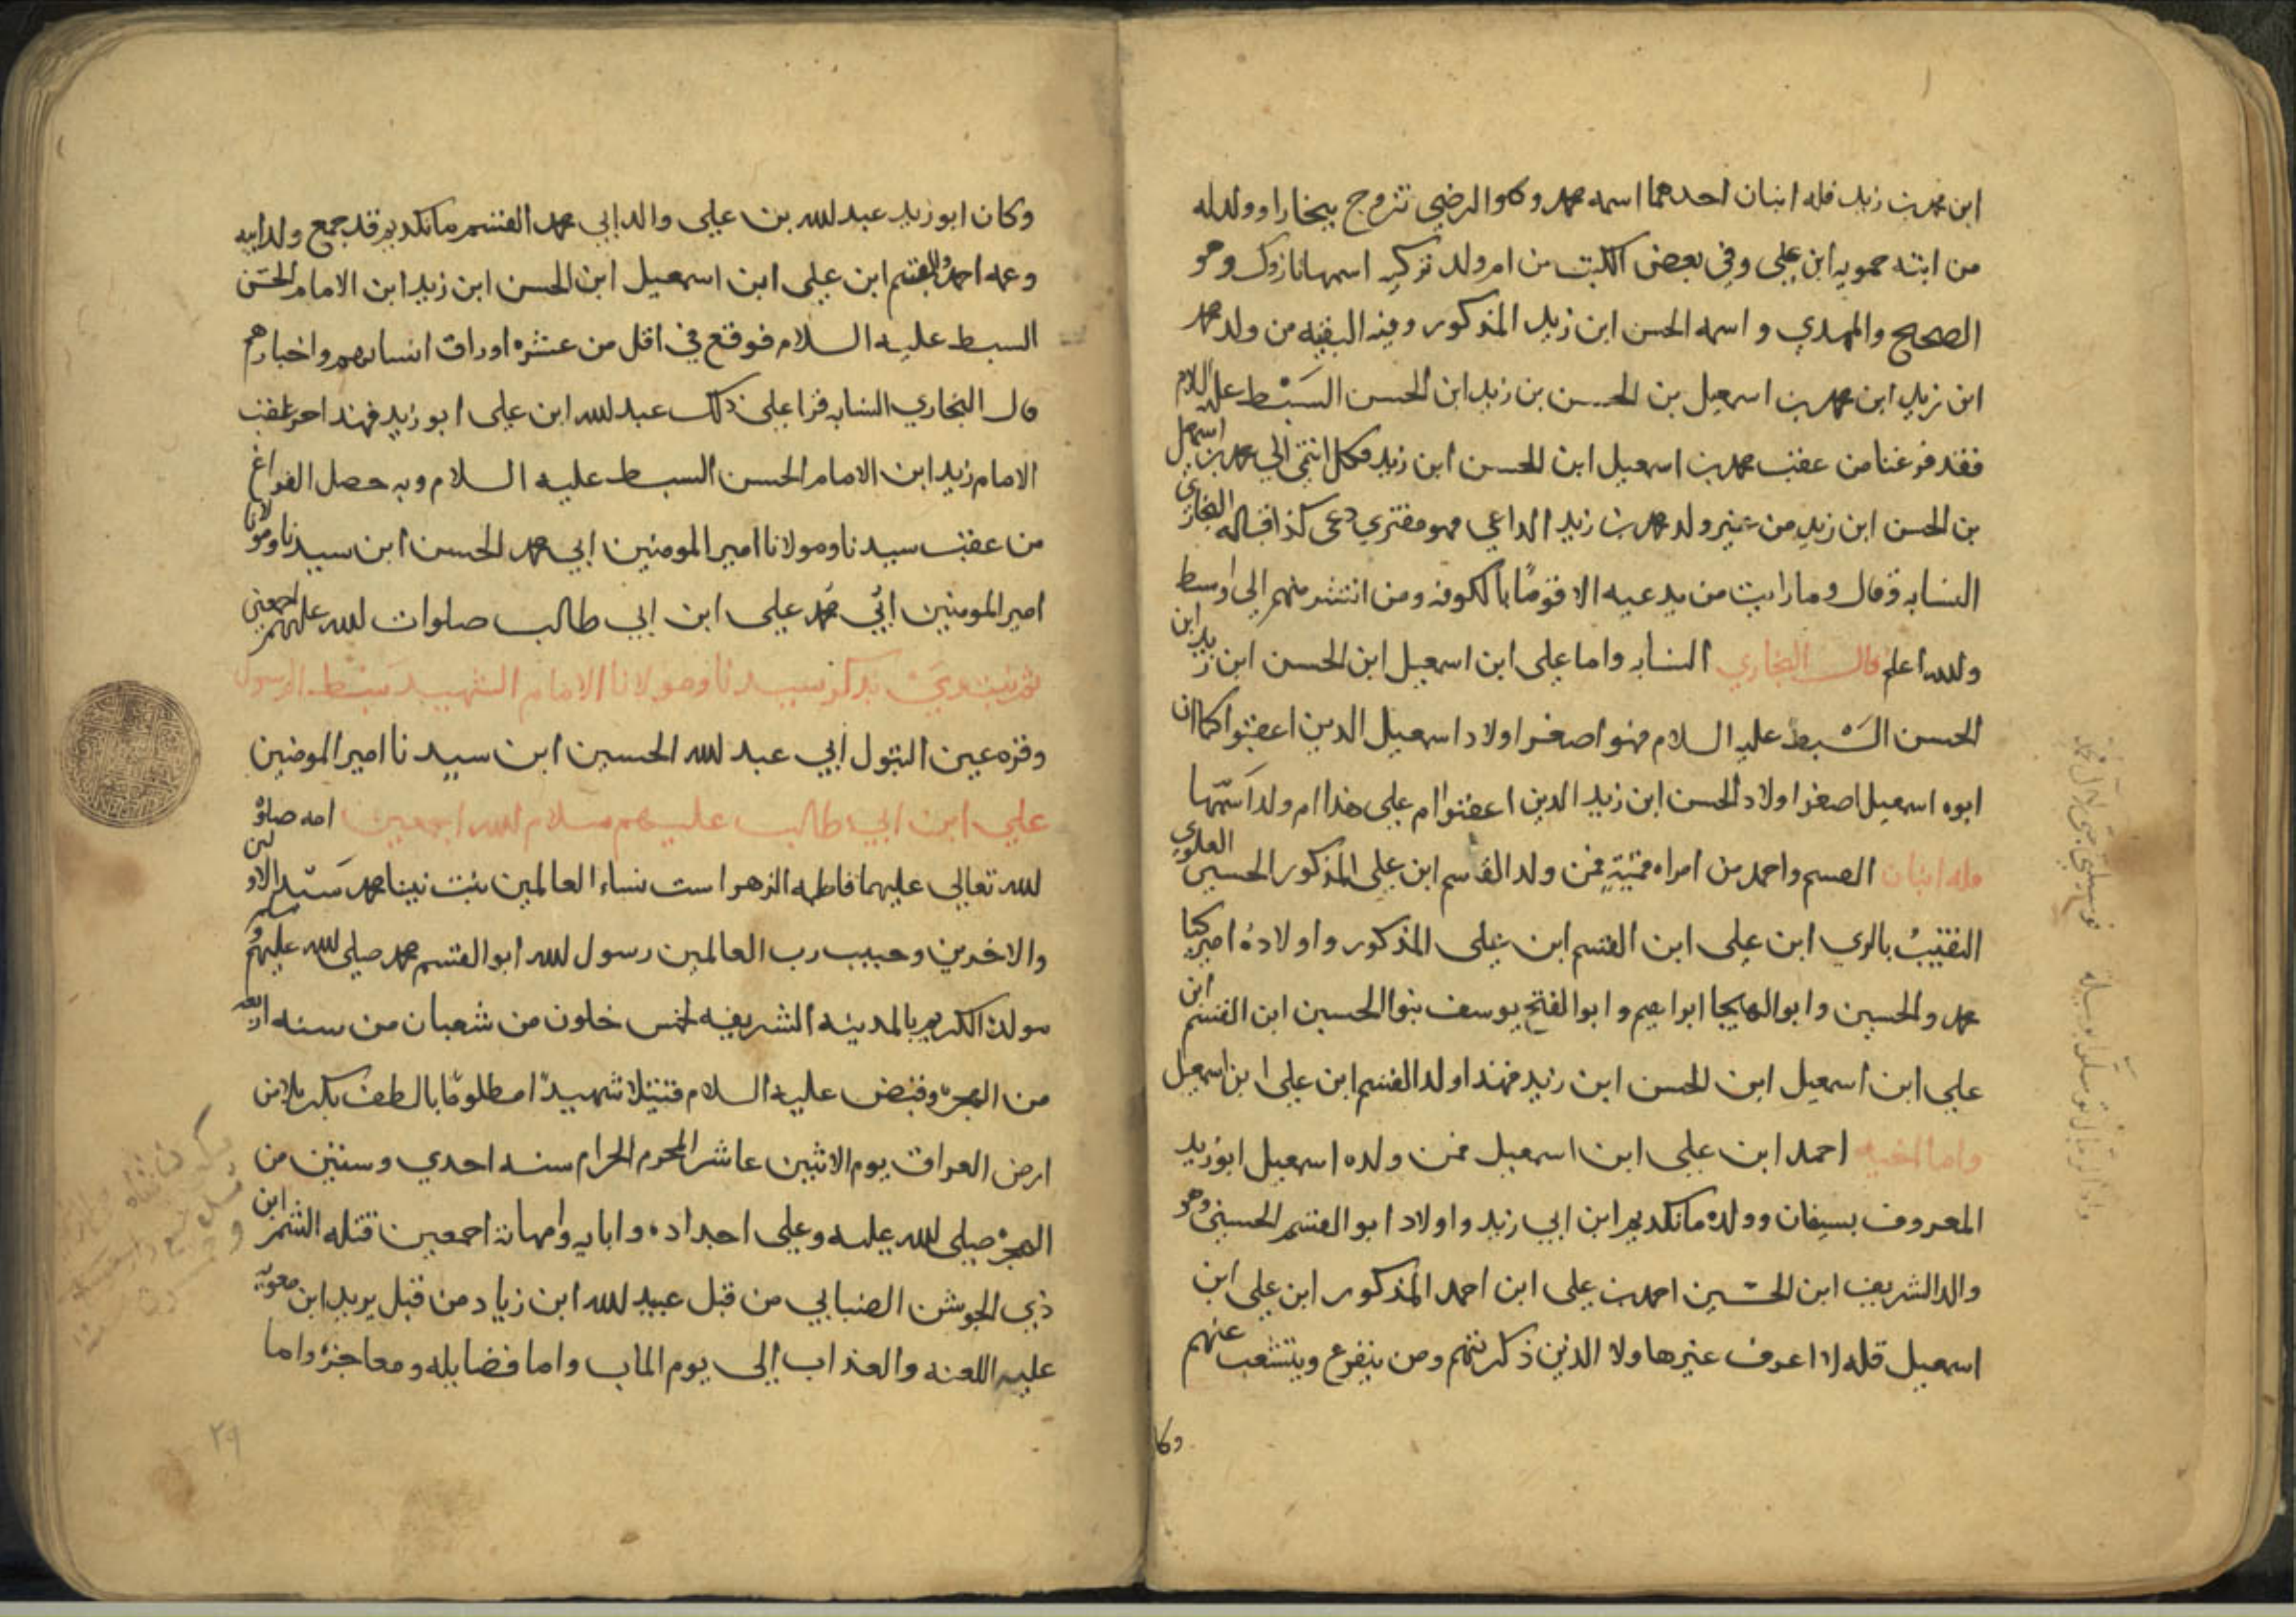 ابن محمد بن زيد فله ابنان احدهما اسمه محمد وكاوالرضي تزوج ببخارا وولد له
من ابنته حمويه ابن علي وفي بعض الكتب من ام ولد تركيه اسمها نازوك وهو
الصحيح والمهدي واسمه الحسن ابن زيد المذكور وفيه البقيه من ولد محمد
ابن زيد ابن محمد بن اسمعيل بن الحسن بن زيد ابن الحسن السبط عليه السلام
فقد فرغنا من عقب محمد بن اسمعيل ابن الحسن ابن زيد فكل انتمى الي محمد بن اسمعيل
بن الحسن ابن زيد من غير ولد محمد بن زيد الداعي فهو مفتري دعى كذا قاله البخاري
النسابه وقال وما رايت من يدعيه الا قومًا بالكوفه ومن انتشر منهم الى اوسط
ولله اعلم قال البخاري النسابه واما علي ابن اسمعيل ابن الحسن ابن زيد ابن
الحسن السبط عليه السلام فهو اصغر اولاد اسمعيل الدين اعقبوا كما ان
ابوه اسمعيل اصغر اولاد الحسن ابن زيد الدين اعقبوا ام علي هذا ام ولد اسمها
فله ابنان القسم واحمد من امراه فمن ولد القاسم ابن علي المذكور الحسين العلوي
النقيب بالري ابن علي ابن القسم ابن علي المذكور واولاده اميركيا
محمد والحسين وابوالهيجا ابراهيم وابوالفتح يوسف بنوا الحسين ابن القسم ابن
علي ابن اسمعيل ابن الحسن ابن زيد فهذا ولد القسم ابن علي ابن اسمعيل
واما اخيه احمد ابن علي ابن اسمعيل فمن ولده اسمعيل ابوزيد
المعروف بسيفان وولده مانكديم ابن ابي زيد واولاد ابو القسم الحسيني وهو
والد الشريف ابن الحسين احمد بن علي ابن احمد المذكور ابن علي ابن
اسمعيل قله لا اعرف غيرها ولا الدين ذكرتهم ومن يتفرع ويتشعب عنهم
وكا
وكان ابوزيد عبد لله بن علي والد ابي محمد القسم مانكديم قد جمع ولد ابيه
وعمه احمد والقسم ابن علي ابن اسمعيل ابن الحسن ابن زيد ابن الامام الحسن
السبط عليه السلام فوقع في اقل من عشره اوراق انسابهم واخبارهم
قال البخاري النسابه قرا علي ذلك عبد لله ابن علي ابو زيد فهذا اخر عقب
الامام زيد ابن الامام الحسن السبط عليه السلام وبه حصل الفراغ
من عقب سيدنا ومولانا امير المومنين ابي محمد الحسن ابن سيدنا ومولانا
امير المومنين ابي محمد علي ابن ابي طالب صلوات لله عليهم اجمعين
ثم نبتدي بذكر سيدنا ومولانا الامام الشهيد سبط الرسول
وقره عين البتول ابي عبد لله الحسين ابن سيدنا امير المومنين
علي ابن ابي طالب عليهم سلام لله اجمعين امه صلوة
لله تعالي عليهما فاطمه الزهرا ست نساء العالمين بنت نبينا محمد سيد الاولين
والاخرين وحبيب رب العالمين رسول لله ابو القسم محمد صلى لله عليهم وسلم
مولده الكريم بالمدينه الشريفه لخمس خلون من شعبان من سنه اربعه
من الهجره وقبض عليه السلام قتيلا شهيدًا مظلومًا بالطف بكربلا من
ارض العراق يوم الاثنين عاشر المحرم الحرام سنه احدي وستين من
الهجره صلى لله عليه وعلى اجداده وابايه وامهاته اجمعين قتله الشمر ابن
ذي الجوشن الضبابي من قبل عبيد لله ابن زياد من قبل يزيد ابن معويه
عليه اللعنه والعذاب إلى يوم الماب واما فضايله ومعاجزه واما
٢٩